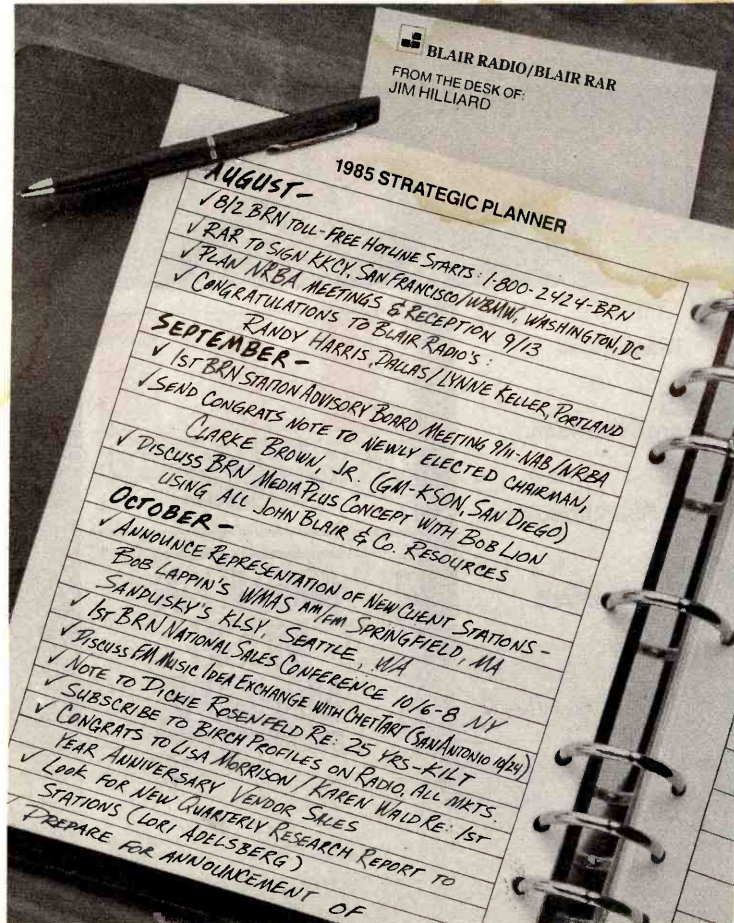 BLAIR RADIO/BLAIR RAR
FROM THE DESK OF:
JIM HILLIARD
1985 STRATEGIC PLANNER
AUGUST-
✓ 8/2 BRN TOLL-FREE HOTLINE STARTS: 1-800-2424-BRN
✓ RAR TO SIGN KKCY, SAN FRANCISCO/WBMW, WASHINGTON, DC
✓ PLAN NRBA MEETINGS & RECEPTION 9/13
✓ CONGRATULATIONS TO BLAIR RADIO'S:
RANDY HARRIS, DALLAS/LYNNE KELLER, PORTLAND
SEPTEMBER-
✓ 1ST BRN STATION ADVISORY BOARD MEETING 9/11-NAB/NRBA
✓ SEND CONGRATS NOTE TO NEWLY ELECTED CHAIRMAN,
CLARKE BROWN, JR. (GM-KSON, SAN DIEGO)
✓ DISCUSS BRN MEDIA PLUS CONCEPT WITH BOB LION
USING ALL JOHN BLAIR & CO. RESOURCES
OCTOBER-
✓ ANNOUNCE REPRESENTATION OF NEW CLIENT STATIONS-
BOB LAPPIN'S WMAS am/fm SPRINGFIELD, MA
SANDUSKY'S KLSY, SEATTLE, WA
✓ 1ST BRN NATIONAL SALES CONFERENCE 10/6-8 NY
✓ DISCUSS FM MUSIC IDEA EXCHANGE WITH CHET TART (SAN ANTONIO 10/24)
✓ NOTE TO DICKIE ROSENFELD RE: 25 YRS-KILT
✓ SUBSCRIBE TO BIRCH PROFILES ON RADIO, ALL MKTS.
✓ CONGRATS TO LISA MORRISON/KAREN WALD RE: 1ST
YEAR ANNIVERSARY VENDOR SALES
✓ LOOK FOR NEW QUARTERLY RESEARCH REPORT TO
STATIONS (LORI ADELSBERG)
PREPARE FOR ANNOUNCEMENT OF